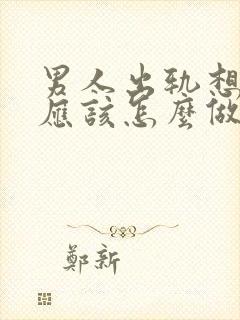 男人出轨想
應該怎麼做
鄭新